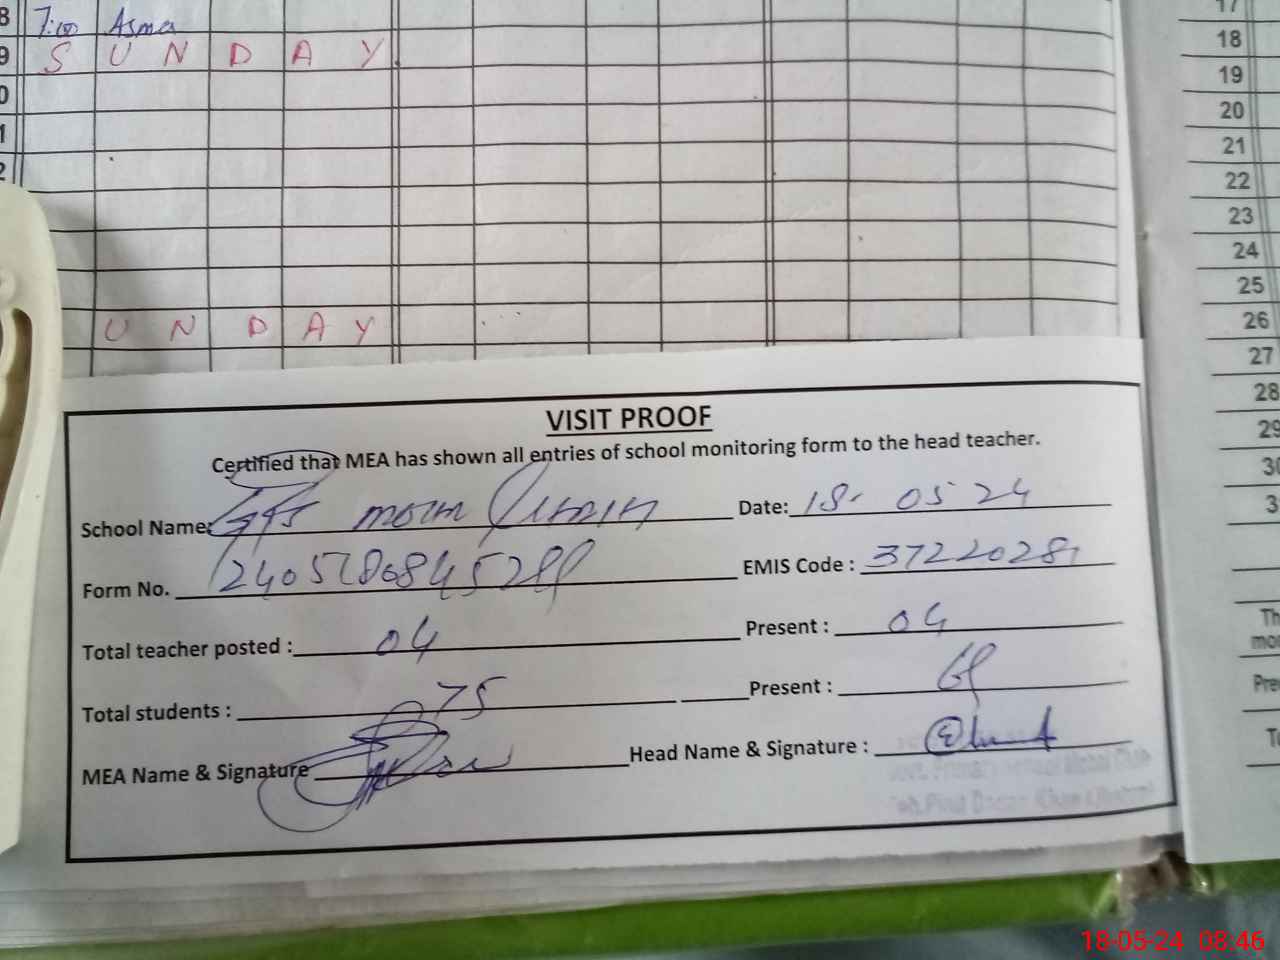 8 7:00 Asma
9 S U N D A Y
0
1
2
U N D A Y
VISIT PROOF
Certified that MEA has shown all entries of school monitoring form to the head teacher.
School Name: Date: 18- 05 24
Form No. EMIS Code : 37220281
Total teacher posted : 04 Present : 04
Total students : 75 Present :
MEA Name & Signature Head Name & Signature :
17
18
19
20
21
22
23
24
25
26
27
28
29
30
3
Th
mo
Pre
To
18-05-24 08:46